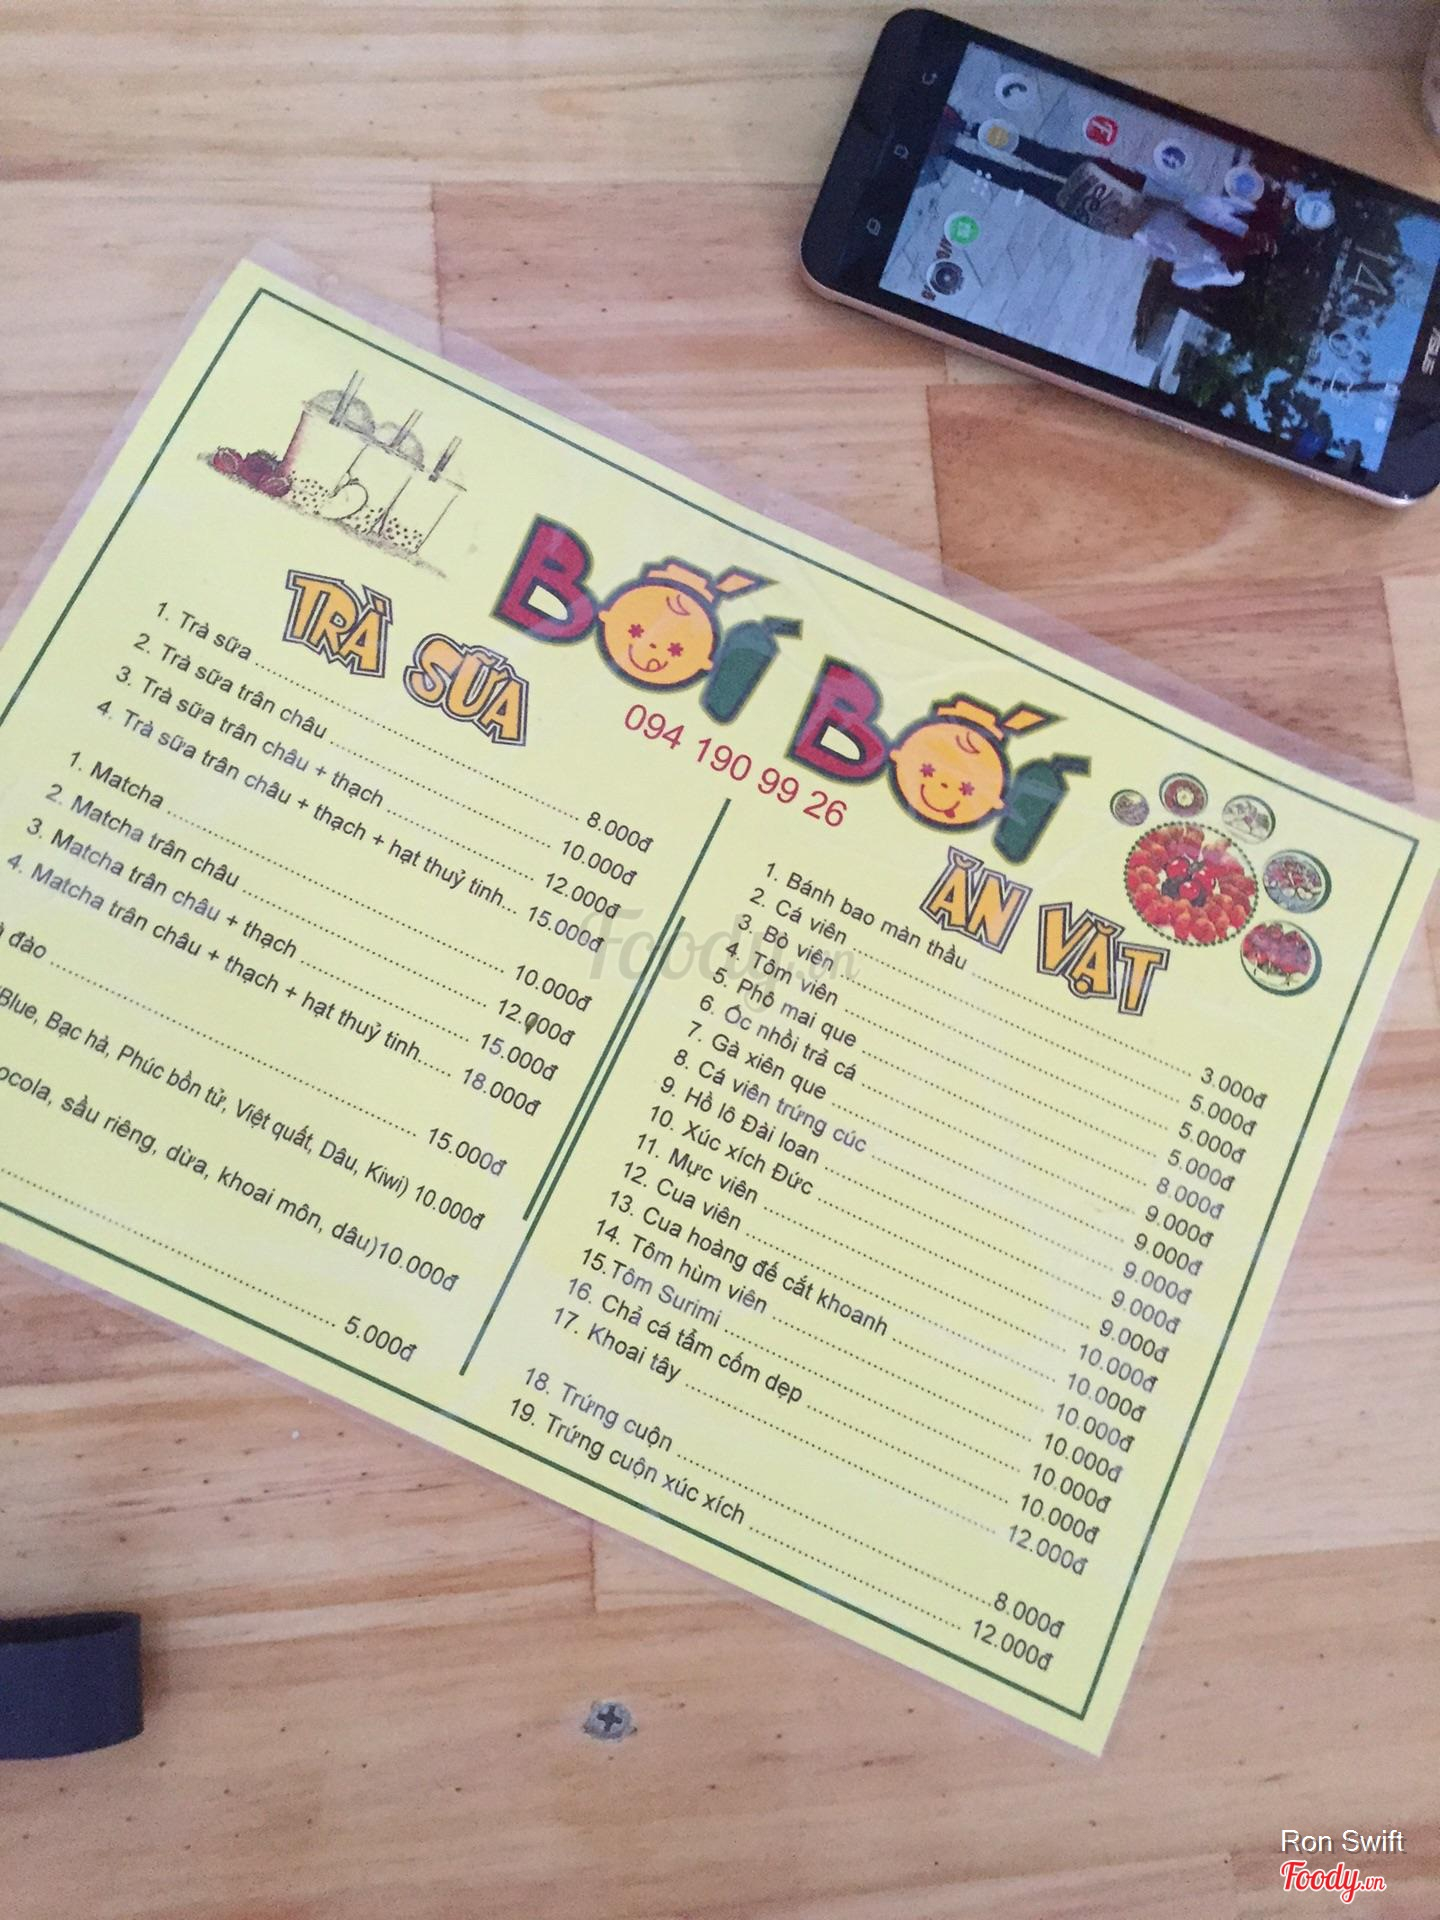 BỐI BỐI
094 190 99 26
TRÀ SỮA
1. Trà sữa ........ 8.000đ
2. Trà sữa trân châu ........ 10.000đ
3. Trà sữa trân châu + thạch ........ 12.000đ
4. Trà sữa trân châu + thạch + hạt thuỷ tinh... 15.000đ
1. Matcha ........ 10.000đ
2. Matcha trân châu ........ 12.000đ
3. Matcha trân châu + thạch ........ 15.000đ
4. Matcha trân châu + thạch + hạt thuỷ tinh...... 18.000đ
đào ........ 15.000đ
Blue, Bạc hà, Phúc bồn tử, Việt quất, Dâu, Kiwi) 10.000đ
ocola, sầu riêng, dừa, khoai môn, dâu)10.000đ
........ 5.000đ
ĂN VẶT
1. Bánh bao màn thầu ........ 3.000đ
2. Cá viên ........ 5.000đ
3. Bò viên ........ 5.000đ
4. Tôm viên ........ 5.000đ
5. Phô mai que ........ 8.000đ
6. Ốc nhồi trả cá ........ 9.000đ
7. Gà xiên que ........ 9.000đ
8. Cá viên trứng cúc ........ 9.000đ
9. Hồ lô Đài loan ........ 9.000đ
10. Xúc xích Đức ........ 9.000đ
11. Mực viên ........ 10.000đ
12. Cua viên ........ 10.000đ
13. Cua hoàng đế cắt khoanh ........ 10.000đ
14. Tôm hùm viên ........ 10.000đ
15.Tôm Surimi ........ 10.000đ
16. Chả cá tẩm cốm dẹp ........ 10.000đ
17. Khoai tây ........ 12.000đ
18. Trứng cuộn ........ 8.000đ
19. Trứng cuộn xúc xích ........ 12.000đ
Foody.vn
ASUS
Ron Swift
Foody.vn